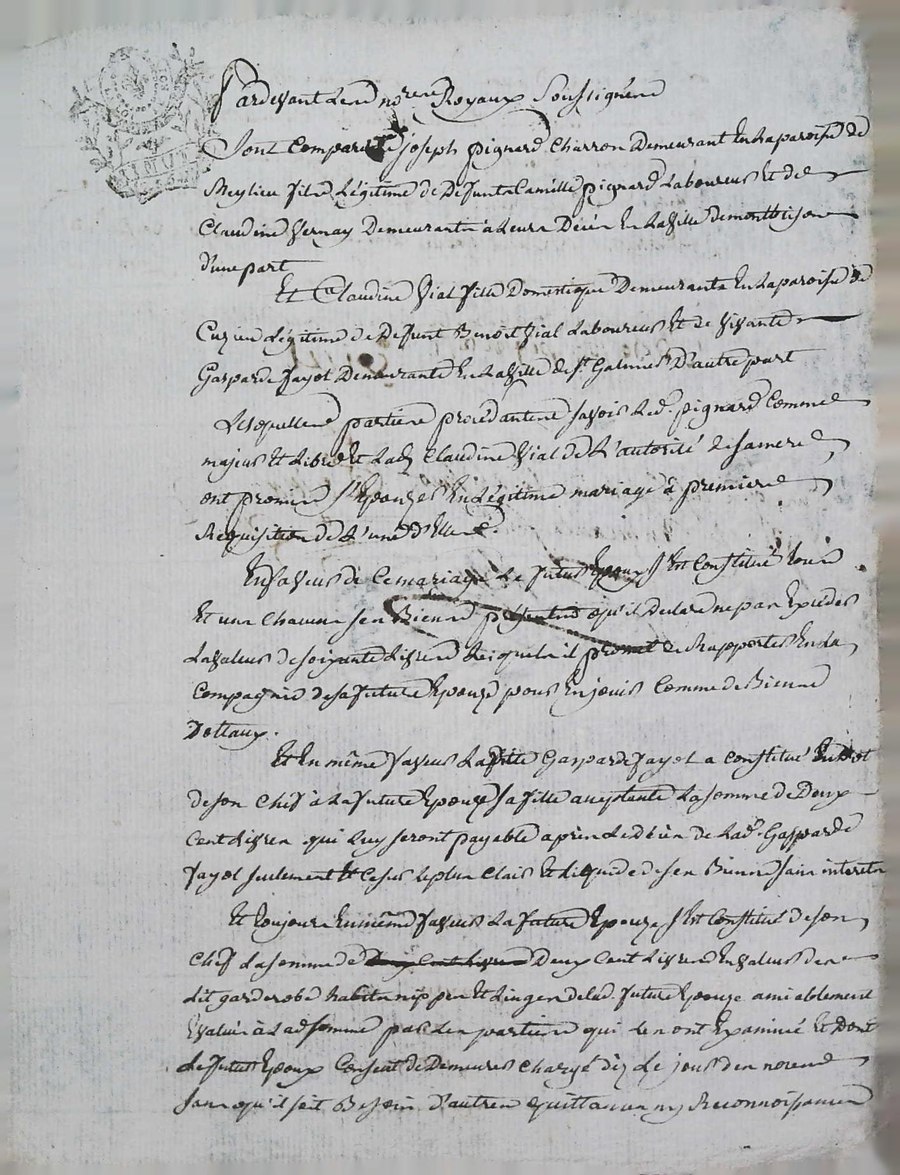 Pardevant Les no.res Royaux Soussignés
Sont Comparus joseph pignard Charron Demeurant En La paroisse de
Meylieu fils Légitime de Défunts Camille pignard Laboureur Et de
Claudine Vernay Demeurants à Leurs Décès En La Ville de montbrison
d'une part
Et Claudine Vial fille Domestique Demeurante En La paroisse de
Cuzieu Légitime de Défunt Benoit Vial Laboureur Et de Vivante
Gasparde fayol Demeurante En La Ville de St Galmier D'autre part
Lesquelles parties procédantes savoir Led. pignard Comme
majeur Et Libre Et Lad. Claudine Vial de L'autorité de sa mere
ont promis s'Epouzer En Légitime mariage à première
Réquisition de L'une d'Elles.
En faveur de Ce mariage Le futur Epoux s'Est Constitué tous
Et uns Chacuns ses Biens présents qu'il déclare ne pas Excéder
La valeur de soixante Livres Lesquels il promet de Rapporter En La
Compagnie de sa future Epouze pour En jouir Comme de Biens
Dottaux.
Et En même faveur Lad. Gasparde fayol a Constitué En Dot
de son Chef à La future Epouze sa fille acceptante La somme de Deux
Cent Livres qui Luy seront payable après Le Décès de Lad. Gasparde
fayol seulement Et Ce sur Le plus Clair Et Liquide de ses Biens sans interets
Et toujours En même faveur La future Epouze s'Est Constitué de son
Chef La somme de Deux Cent Livres Deux Cent Livres En valeur de ses
Lit garderobe habits nippes Et Linges de Lad. future Epouze amiablement
Evalués à Lad. somme par Les parties qui Les ont Examiné Et Dont
Le futur Epoux Consent de Demeurer Chargé dès Le jour des noces
sans qu'il soit Besoin d'autres quittances ny Reconnoissances